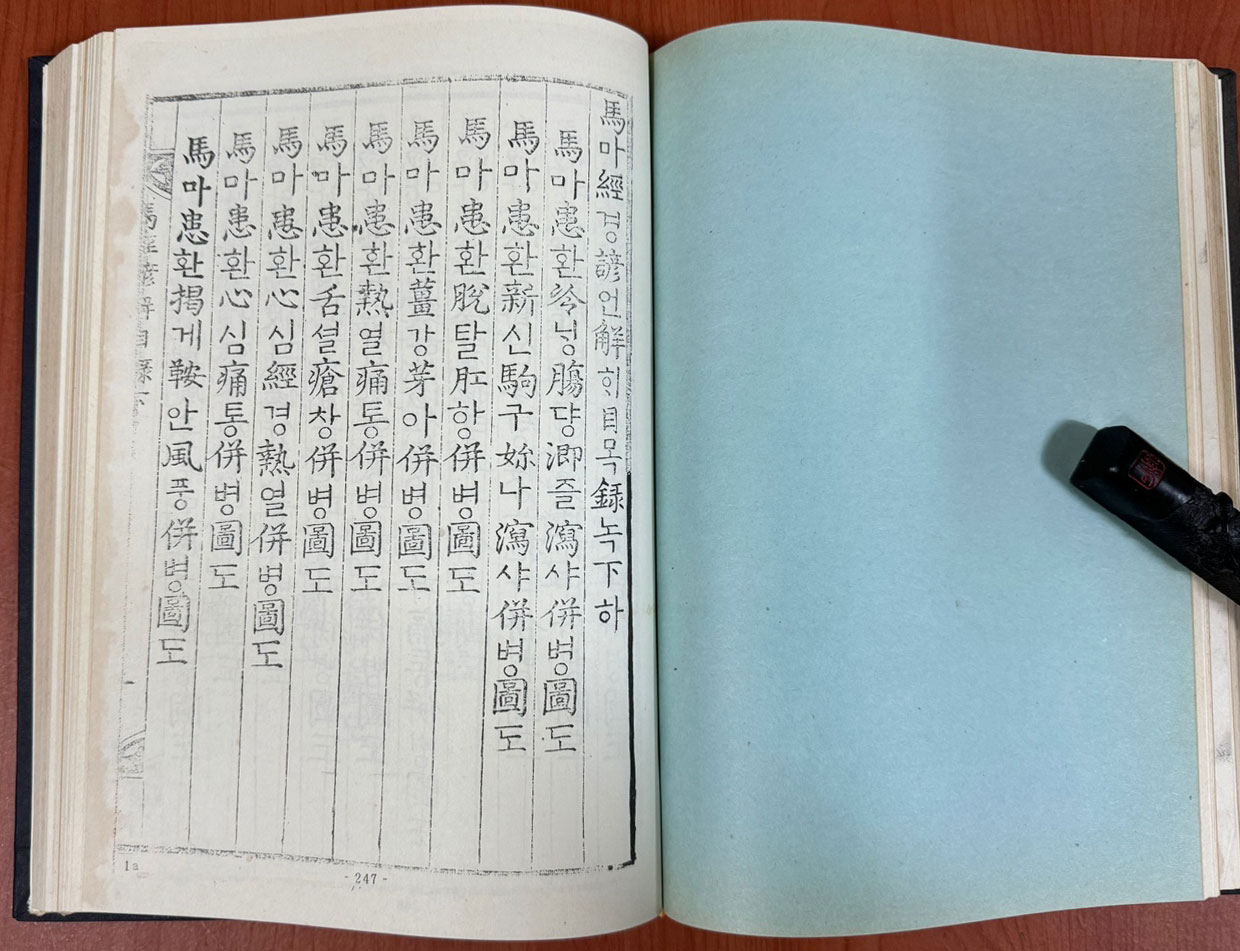 馬마經경諺언解ᄒᆡ目목錄녹下하
馬마患환冷닝膓댱즐瀉샤併병圖도
馬마患환新신駒구妳나瀉샤併병圖도
馬마患환脫탈肛항併병圖도
馬마患환薑강芽아併병圖도
馬마患환熱열痛통併병圖도
馬마患환舌셜瘡창併병圖도
馬마患환心심經경熱열併병圖도
馬마患환心심痛통併병圖도
馬마患환揭게鞍안風풍併병圖도
馬經諺解目錄下
1a
- 247 -